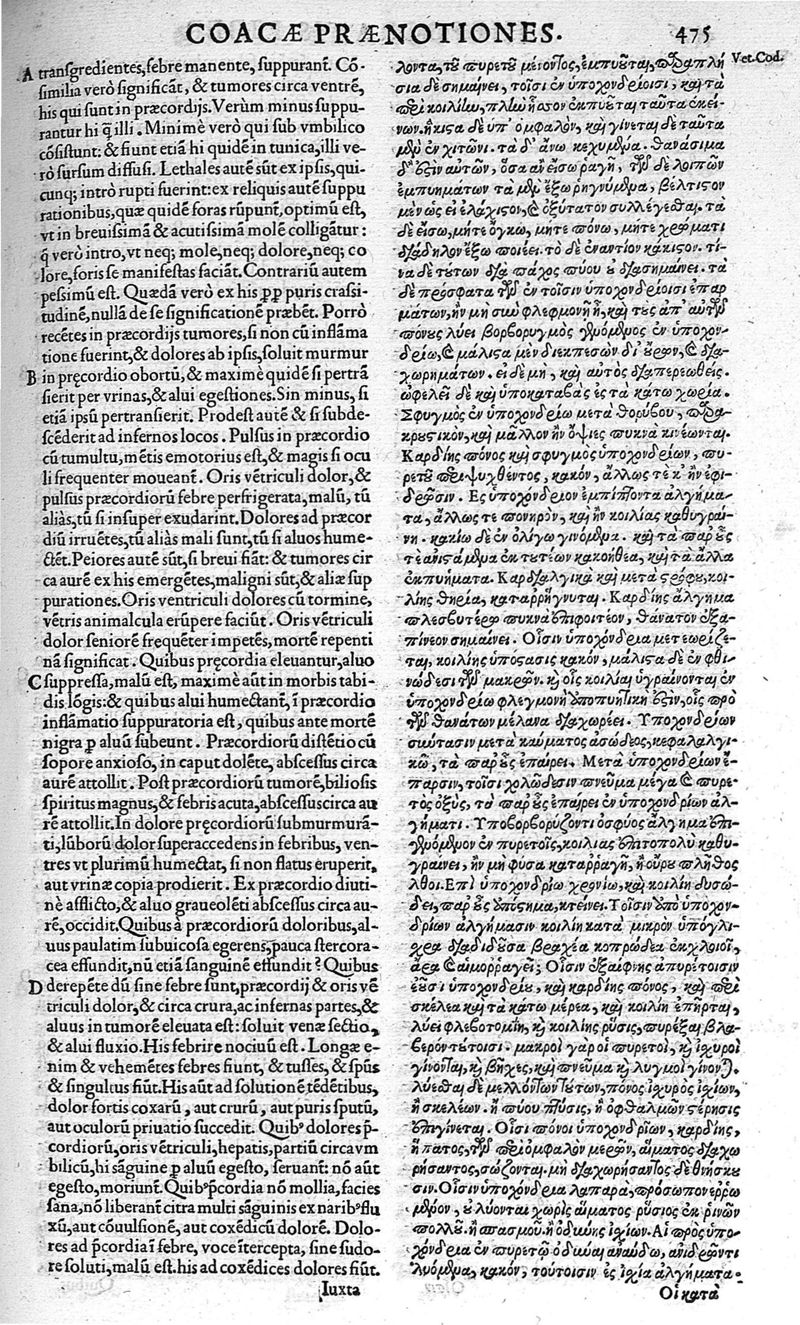 COACÆ PRÆNOTIONES. 475
A transgredientes, febre manente, suppurant. Cō-
similia verò significāt, & tumores circa ventrē,
his qui sunt in præcordijs. Verùm minus suppu-
rantur hi q̄ illi. Minimè verò qui sub vmbilico
cōsistunt: & fiunt etiā hi quidē in tunica, illi ve-
rò sursum diffusi. Lethales autē sūt ex ipsis, qui-
cunq; intrò rupti fuerint: ex reliquis autē suppu
rationibus, quæ quidē foras rūpunt, optimū est,
vt in breuissimā & acutissimā molē colligātur:
q̄ verò intro, vt neq; mole, neq; dolore, neq; co
lore, foris se manifestas faciāt. Contrariū autem
pessimū est. Quædā verò ex his ꝓꝑ puris crassi-
tudinē, nullā de se significationē præbēt. Porrò
recētes in præcordijs tumores, si non cū inflāma
tione fuerint, & dolores ab ipsis, soluit murmur
B in pręcordio obortū, & maximè quidē si pertrā
sierit per vrinas, & alui egestiones. Sin minus, si
etiā ipsū pertransierit. Prodest autē & si subde-
scēderit ad infernos locos. Pulsus in præcordio
cū tumultu, mētis emotorius est, & magis si ocu
li frequenter moueant. Oris vētriculi dolor, &
pulsus præcordiorū febre perfrigerata, malū, tū
aliàs, tū si insuper exudarint. Dolores ad præcor
diū irruētes, tū aliàs mali sunt, tū si aluos hume-
ctēt. Peiores autē sūt, si breui fiāt: & tumores cir
ca aurē ex his emergētes, maligni sūt, & aliæ sup
purationes. Oris ventriculi dolores cū tormine,
vētris animalcula erūpere faciūt. Oris vētriculi
dolor seniorē frequēter impetēs, mortē repenti
nā significat. Quibus pręcordia eleuantur, aluo
C suppressa, malū est, maximè aūt in morbis tabi-
dis lōgis: & quibus alui humectant, ī præcordio
inflāmatio suppuratoria est, quibus ante mortē
nigra ꝑ aluū subeunt. Præcordiorū distētio cū
sopore anxioso, in caput dolēte, abscessus circa
aurē attollit. Post præcordiorū tumorē, biliosis
spiritus magnus, & febris acuta, abscessus circa au
rē attollit. In dolore pręcordiorū submurmurā-
ti, lūborū dolor superaccedens in febribus, ven-
tres vt plurimū humectat, si non flatus eruperit,
aut vrinæ copia prodierit. Ex præcordio diuti-
nè afflicto, & aluo graueolēti abscessus circa au-
rē, occidit. Quibus à præcordiorū doloribus, al-
uus paulatim subuicosa egerens, pauca stercora-
cea effundit, nū etiā sanguinē effundit? Quibus
D derepēte dū sine febre sunt, præcordij & oris vē
triculi dolor, & circa crura, ac infernas partes, &
aluus in tumorē eleuata est: soluit venæ sectio,
& alui fluxio. His febrire nociuū est. Longæ e-
nim & vehemētes febres fiunt, & tusses, & spūs
& singultus fiūt. His aūt ad solutionē tēdētibus,
dolor fortis coxarū, aut crurū, aut puris sputū,
aut oculorū priuatio succedit. Quibꝰ dolores p̄-
cordiorū, oris vētriculi, hepatis, partiū circa vm
bilicū, hi sāguine ꝑ aluū egesto, seruant: nō aūt
egesto, moriunt. Quibꝰ p̄cordia nō mollia, facies
sana, nō liberant citra multi sāguinis ex naribꝰ flu
xū, aut cōuulsionē, aut coxēdicū dolorē. Dolo-
res ad p̄cordia ī febre, voce ītercepta, sine sudo-
re soluti, malū est. his ad coxēdices dolores fiūt.
Iuxta
Vet. Cod.
λοντα, τοῦ πυρετοῦ μένοντος, ἐμπυοῦται, παραπλή
σια δὲ σημαίνει, τοῖσι ἐν ὑποχονδρίοισι, καὶ τὰ
περὶ κοιλίην, πλὴν ἧσσον ἐκπυεῖται ταῦτα ἐκεί-
νων. ἥκιστα δὲ ὑπ' ὀμφαλὸν, καὶ γίνεται δὲ ταῦτα
μὲν ἐν χιτῶνι. τὰ δ' ἄνω κεχυμένα. θανάσιμα
δ' ἐστὶν αὐτῶν, ὅσα ἂν εἴσω ῥαγῇ, τῶν δὲ λοιπῶν
ἐμπυημάτων τὰ μὲν ἔξω ῥηγνύμενα, βέλτιστον
μὲν ὡς εἰ ἐλάχιστον, καὶ ὀξύτατον συλλέγεσθαι. τὰ
δὲ εἴσω, μήτε ὄγκῳ, μήτε πόνῳ, μήτε χρώματι
διάδηλον ἔξω ποιέει. τὸ δὲ ἐναντίον κάκιστον. τί-
να δὲ τούτων διὰ πάχος πύου οὐ διασημαίνει. τὰ
δὲ πρόσφατα τῶν ἐν τοῖσιν ὑποχονδρίοισι ἐπαρ
μάτων, ἢν μὴ σὺν φλεγμονῇ ᾖ, καὶ τοὺς ἀπ' αὐτῶν
πόνους λύει βορβορυγμὸς γενόμενος ἐν ὑποχον-
δρίῳ, καὶ μάλιστα μὲν διεκπεσὼν δι' οὔρων, καὶ δια-
χωρημάτων. εἰ δὲ μὴ, καὶ αὐτὸς διαπεραιωθείς.
ὠφελεῖ δὲ καὶ ὑποκαταβὰς ἐς τὰ κάτω χωρία.
Σφυγμὸς ἐν ὑποχονδρίῳ μετὰ θορύβου, παρα-
κρουστικὸν, καὶ μᾶλλον ἢν ὄψιες πυκνὰ κινέωνται.
Καρδίης πόνος καὶ σφυγμὸς ὑποχονδρίων, πυ-
ρετοῦ περιψυχθέντος, κακόν, ἄλλως τε κ' ἢν ἐφι-
δρῶσιν. Ἐς ὑποχόνδριον ἐμπίπτοντα ἀλγήμα-
τα, ἄλλως τε πονηρὸν, καὶ ἢν κοιλίας καθυγραί-
νῃ. κακίω δὲ ἐν ὀλίγῳ γινόμενα. καὶ τὰ παρ' οὖς
τε ἀνιστάμενα ἐκ τουτέων κακοήθεα, καὶ τὰ ἄλλα
ἐκπυήματα. Καρδιαλγικὰ καὶ μετὰ στρόφου, κοι-
λίης θηρία, καταρρήγνυται. Καρδίης ἄλγημα
πλεσβυτέρῳ πυκνὰ ἐπιφοιτέον, θάνατον ἐξα-
πίνεον σημαίνει. Οἷσιν ὑποχόνδρια μετεωρίζε-
ται, κοιλίης ὑπόστασις κακόν, μάλιστα δὲ ἐν φθι-
νώδεσι τῶν μακρῶν. καὶ οἷς κοιλίαι ὑγραίνονται ἐν
ὑποχονδρίῳ φλεγμονὴ ὑποπυητική ἐστιν, οἷς πρὸ
τῶν θανάτων μέλανα διαχωρέει. Ὑποχονδρίων
σύντασιν μετὰ καύματος ἀσώδεος, κεφαλαλγι-
κῷ, τὰ παρ' οὖς ἐπαίρει. Μετὰ ὑποχονδρίων ἔ-
παρσιν, τοῖσι χολώδεσιν πνεῦμα μέγα καὶ πυρε-
τὸς ὀξύς, τὰ παρ' οὖς ἐπαίρει ἐν ὑποχονδρίων ἀλ-
γήματι. Ὑποβορβορύζοντι ὀσφύος ἄλγημα ἐπι-
γενόμενον ἐν πυρετοῖς, κοιλίας ἐπιτοπολὺ καθυ-
γραίνει, ἢν μὴ φύσα καταρραγῇ, ἢ οὔρου πλῆθος
ἔλθοι. Ἐπὶ ὑποχονδρίῳ χρονίῳ, καὶ κοιλίῃ δυσώ-
δει, παρ' οὖς ἀπόστημα, κτείνει. Τοῖσιν ἀπὸ ὑποχον-
δρίων ἀλγήμασιν κοιλίη κατὰ μικρὸν ὑπόγλι-
σχρα διαδιδοῦσα βραχέα κοπρώδεα ἐκχλοιοῖ,
ἆρα καὶ αἱμορραγεῖ; Οἷσιν ἐξαίφνης ἀπυρέτοισιν
ἐοῦσι ὑποχονδρίου, καὶ καρδίης πόνος, καὶ περὶ
σκέλεα καὶ τὰ κάτω μέρεα, καὶ κοιλίη ἐπῆρται,
λύει φλεβοτομίη, καὶ κοιλίης ῥύσις, πυρέξαι βλα-
βερὸν τούτοισι. μακροὶ γὰρ οἱ πυρετοὶ, καὶ ἰσχυροὶ
γίνονται, καὶ βῆχες, καὶ πνεῦμα καὶ λυγμοὶ γίνονται.
λύεσθαι δὲ μελλόντων τούτων, πόνος ἰσχυρὸς ἰσχίων,
ἢ σκελέων. ἢ πύου πτύσις, ἢ ὀφθαλμῶν στέρησις
ἐπιγίνεται. Οἷσι πόνοι ὑποχονδρίων, καρδίης,
ἥπατος, τῶν περὶ ὀμφαλὸν μερῶν, αἵματος διαχω
ρήσαντος, σώζονται. μὴ διαχωρήσαντος δὲ θνήσκου
σιν. Οἷσιν ὑποχόνδρια λαπαρὰ, πρόσωπον ἐρρω
μένον, οὐ λύονται χωρὶς αἵματος ῥύσιος ἐκ ῥινῶν
πολλοῦ. ἢ σπασμοῦ. ἢ ὀδύνης ἰσχίων. Αἱ πρὸς ὑπο-
χόνδρια ἐν πυρετῷ ὀδύναι ἀναύδῳ, ἀνιδρῶντι
λυόμεναι, κακόν, τούτοισιν ἐς ἰσχία ἀλγήματα.
Οἱ κατὰ